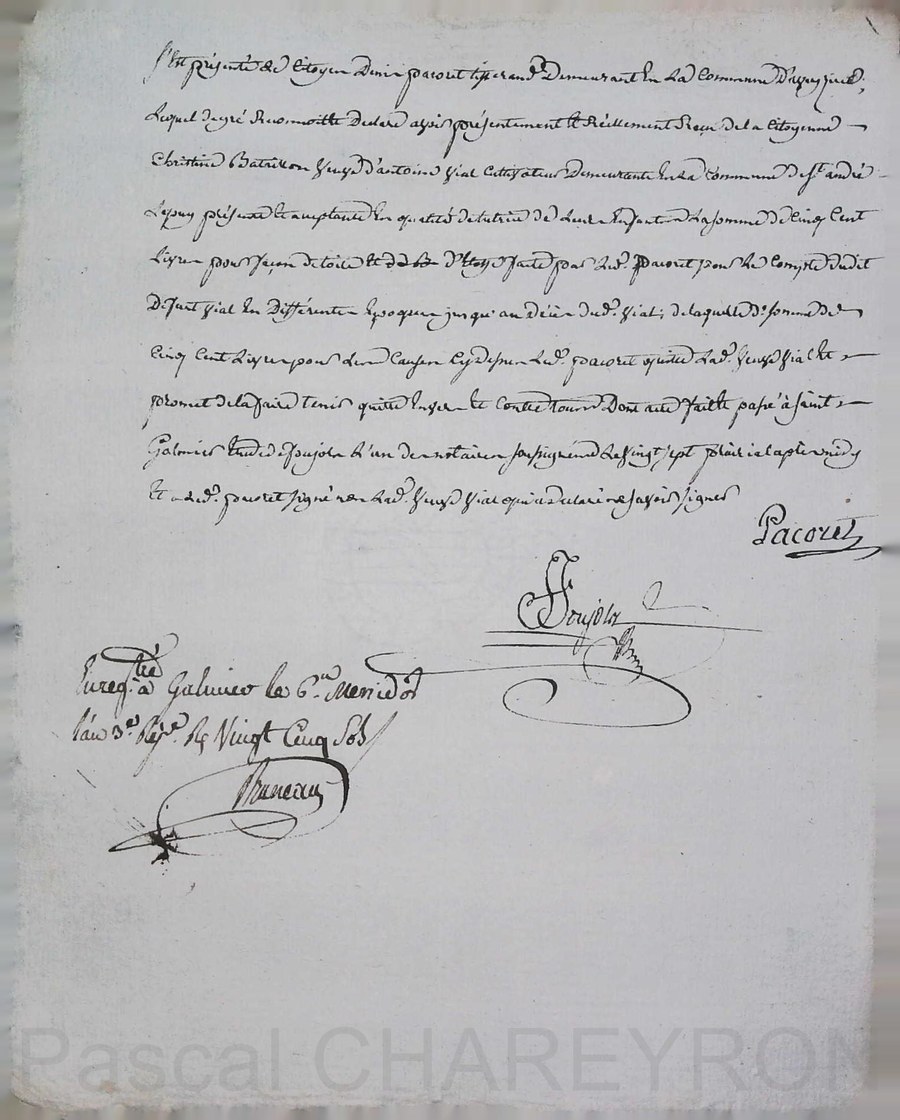 S'est présenté le Citoyen Denis pacoret tisserand Demeurant En La Commune
Lequel de gré Reconnoitte Declare avoir présentement et Réellement Reçu de la Citoyenne
Christine Batisson veuve d'antoine Vial Cultivateur Demeurante En La Commune de St. andré
Lepuy présente et acceptante En qualité de tutrice de Leurs Enfants La somme de Cinq Cent
Livres pour façon de toile et d'étoffe faite par Led. Pacoret pour Le Compte dudit
Defunt Vial En Différentes Epoques jusqu'au Décès dud. Vial; de laquelle de. somme de
Cinq Cent Livres pour Les Causes Cy Dessus Led. pacoret quitte Lad. Veuve Vial Et
promet de la faire tenir quitte Envers Et Contre tous Dont acte fait et passé à Saint
Galmier Etude de Poujols L'un des notaires soussignés Le vingt sept prairial après midy
Et a Led. pacoret signé non Lad. Veuve Vial qui a Declaré ne savoir signer
Pacoret
Poujols
Enregtré à Galmier le 6 Messidor
l'an 3e. Vingt Cinq Sols
Bruneau
Pascal CHAREYRON